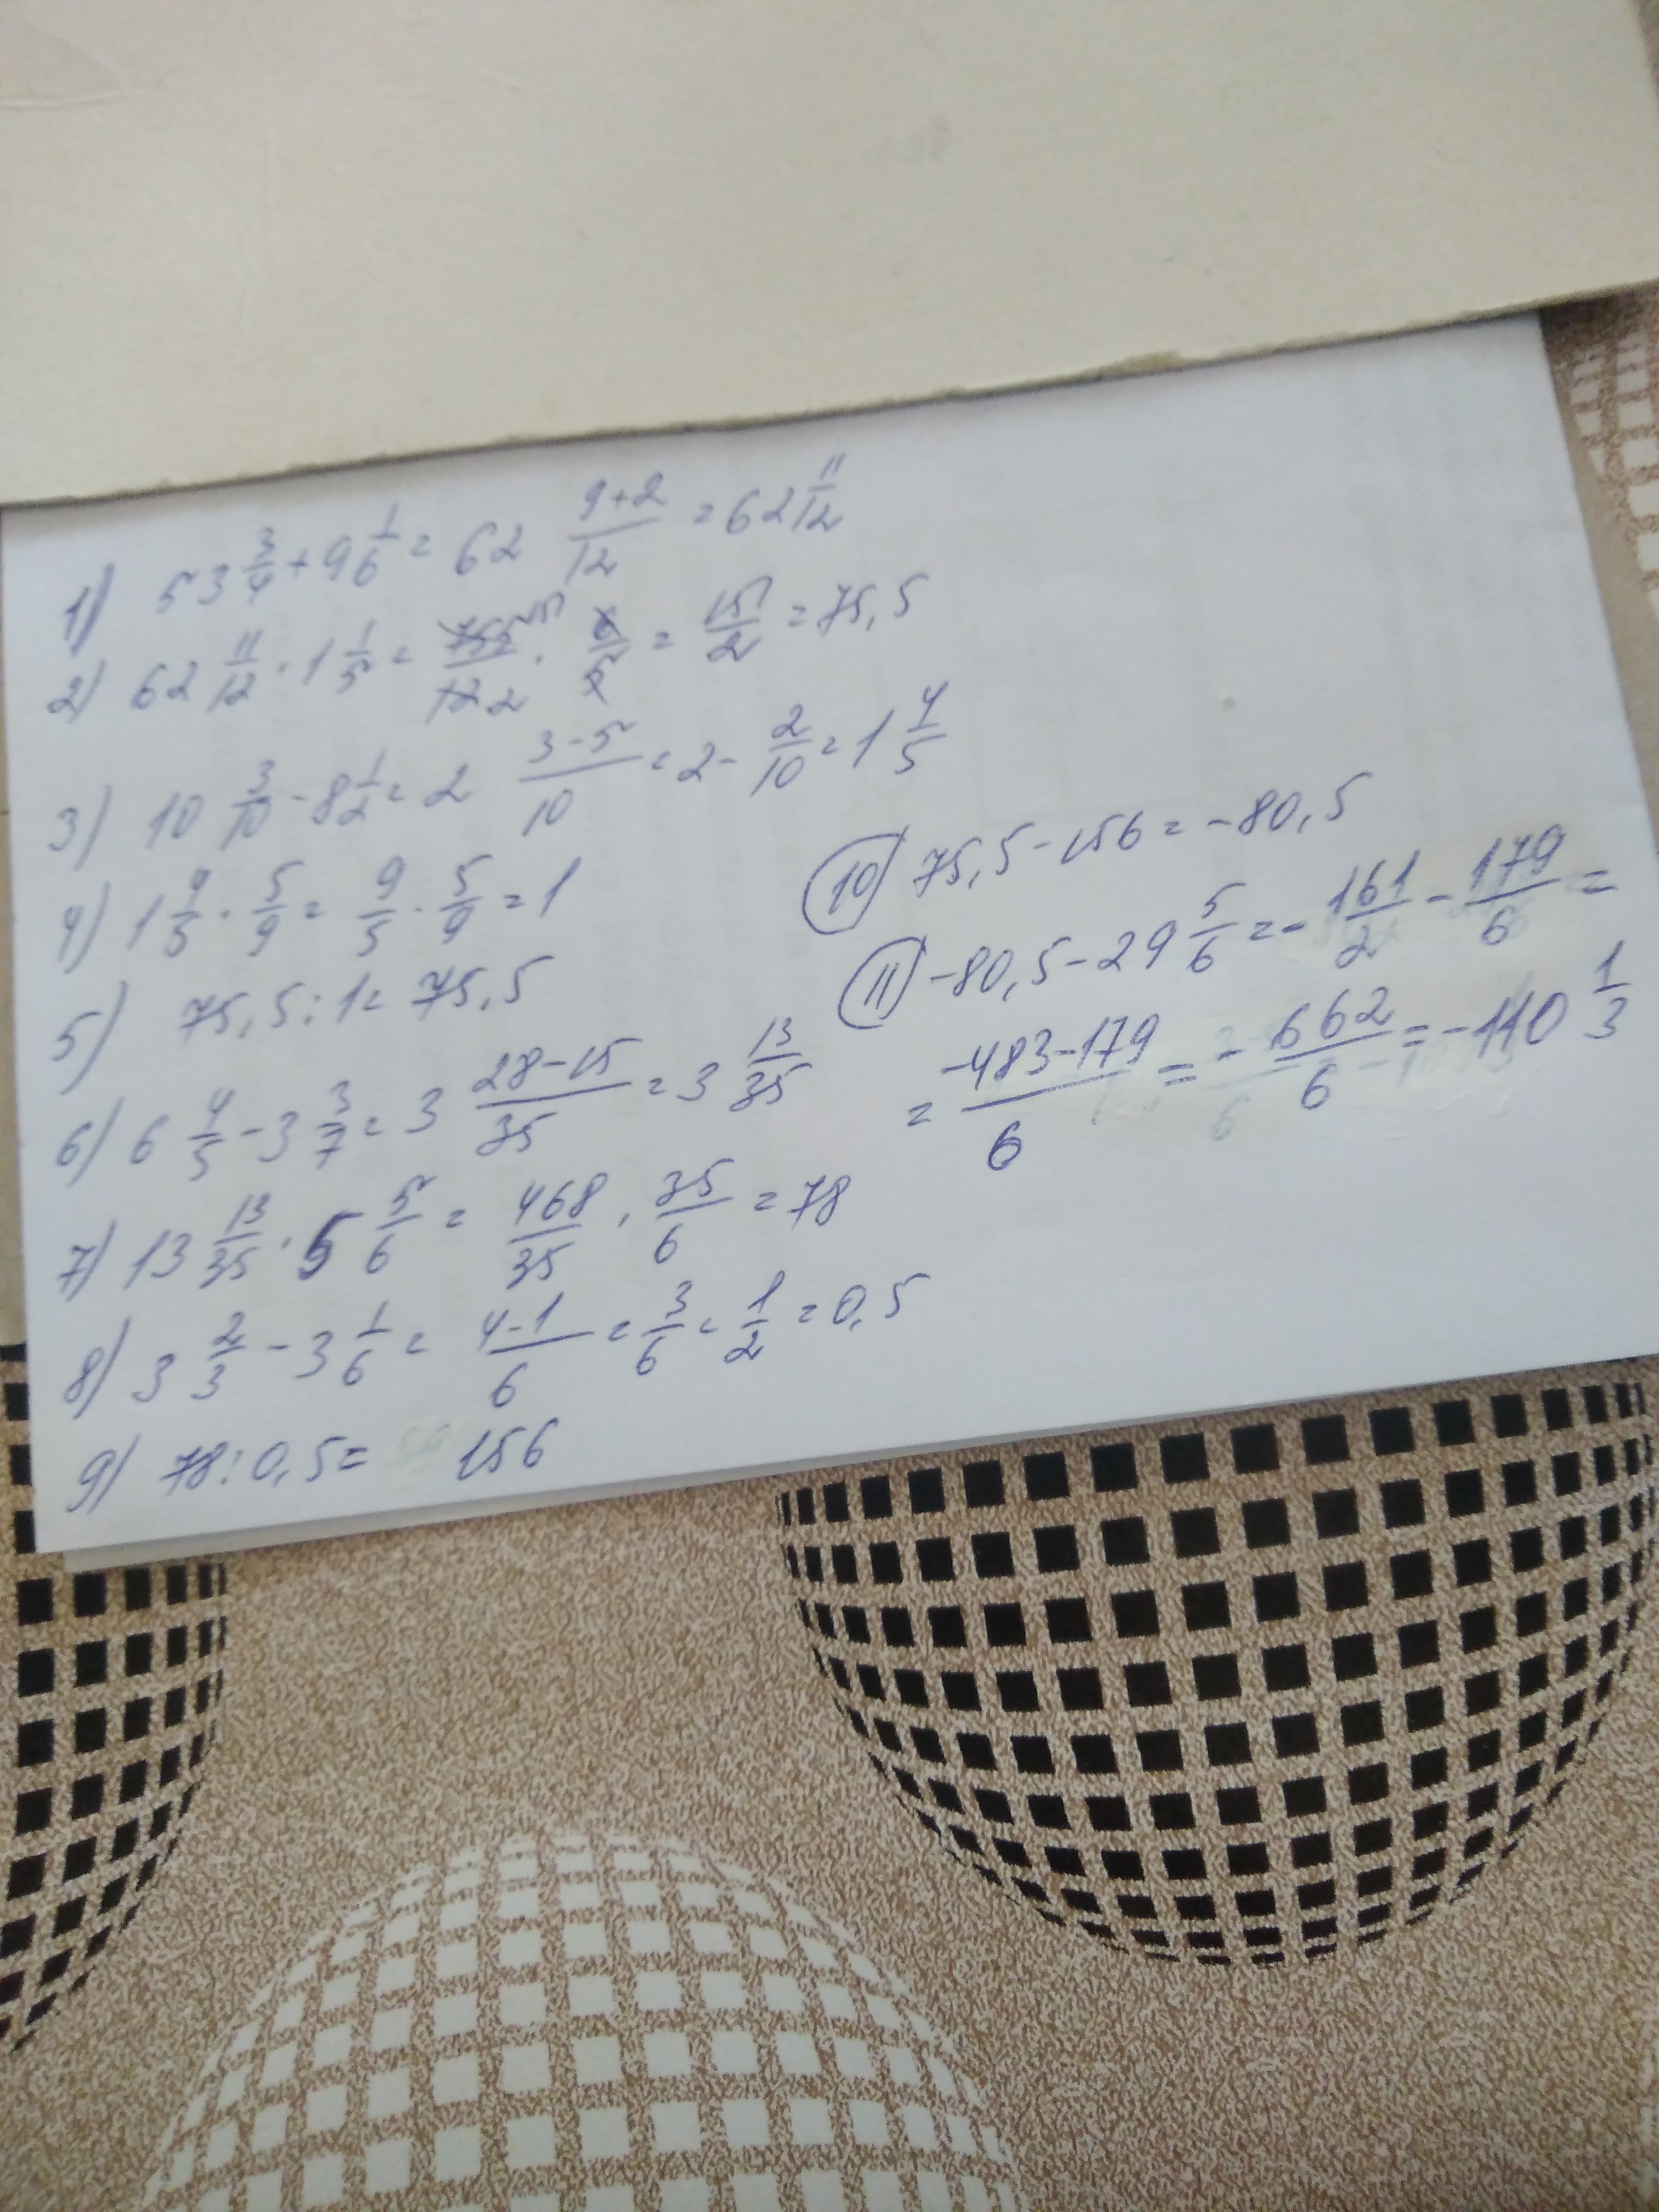 1) 53 3/4 + 9 1/6 = 62 (9+2)/12 = 62 11/12
2) 62 11/12 · 1 1/5 = 755/12 151 2 · 6/5 = 151/2 = 75,5
3) 10 3/10 - 8 1/2 = 2 (3-5)/10 = 2 - 2/10 = 1 4/5
4) 1 4/5 · 5/9 = 9/5 · 5/9 = 1
5) 75,5 : 1 = 75,5
6) 6 4/5 - 3 3/7 = 3 (28-15)/35 = 3 13/35
7) 13 13/35 · 5 5/6 = 468/35 · 35/6 = 78
8) 3 2/3 - 3 1/6 = (4-1)/6 = 3/6 = 1/2 = 0,5
9) 78 : 0,5 = 156
10) 75,5 - 156 = -80,5
11) -80,5 - 29 5/6 = - 161/2 - 179/6 =
= (-483-179)/6 = - 662/6 = -110 1/3